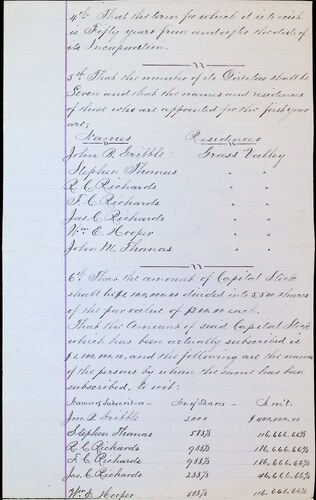 4th. That the term for which it is to exist
is Fifty years from and after the date of
its Incorporation.
5th. That the number of its Directors shall be
Seven and that the names and residences
of those who are appointed for the first year
are;
Names Residences
John R. Gribble Grass Valley
Stephen Thomas " "
R. C. Richards " "
F. C. Richards " "
Jas. C. Richards " "
Wm. E. Hooper " "
John M. Thomas " "
6th. That the amount of Capital Stock
shall be $1,100,000.00 divided into 5,500 shares
of the par value of $200.00 each.
That the Amount of said Capital Stock
which has been actually subscribed is
$1,100,000.00, and the following are the names
of the persons by whom the same has been
subscribed, to wit:
Names of Subscribers No of Shares Amt.
Jno. R. Gribble 2000 $400,000.00
Stephen Thomas 583 1/3 116,666.66 2/3
R. C. Richards 933 1/3
F. C. Richards 116,666.66 2/3
Jas. C. Richards 233 1/3 46,666.66 2/3
Wm. E. Hooper 583 1/3 116,666.66 2/3